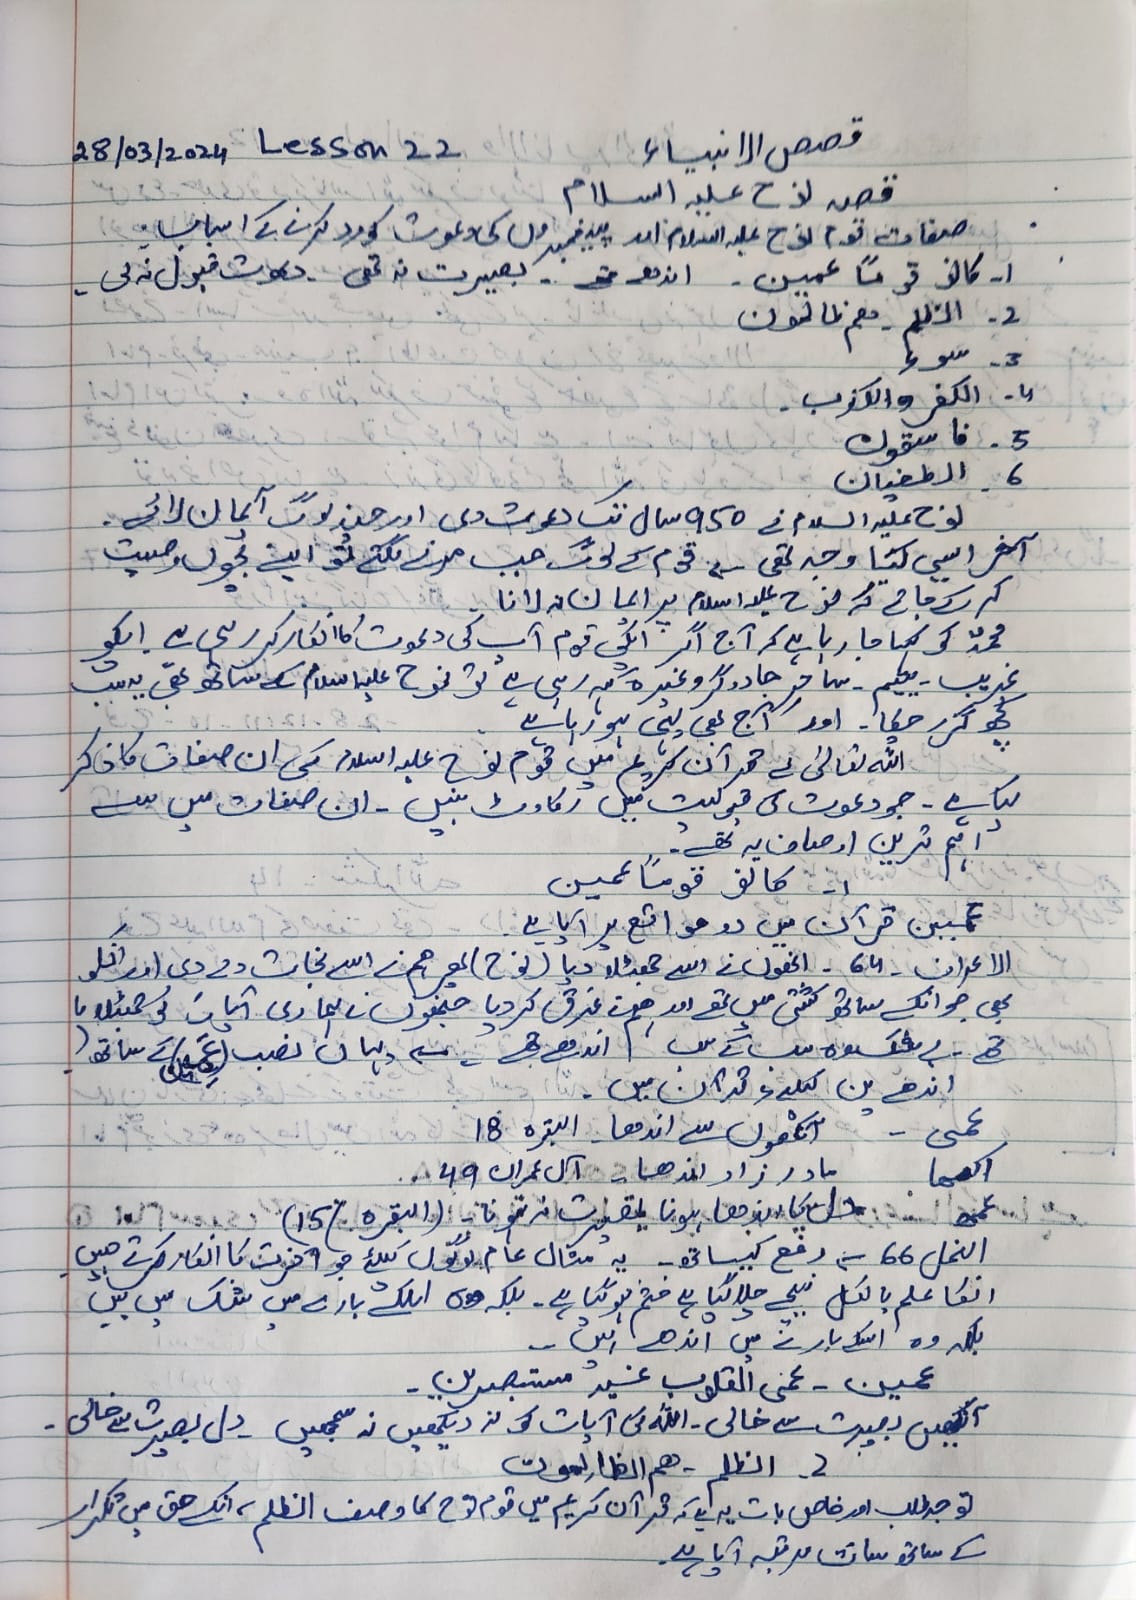 قصص الانبیاء Lesson 22 28/03/2024
قصہ نوح علیہ السلام
صفات قوم نوح علیہ السلام اور پیغمبروں کی دعوت کو رد کرنے کے اسباب۔
1۔ کانو قومًا عمین۔ اندھے تھے۔ بصیرت نہ تھی۔ دعوت قبول نہ کی۔
2۔ الظلم۔ ھم ظالمون
3۔ سوء
4۔ الکفر والکذب۔
5۔ فاسقون
6۔ الطغیان
نوح علیہ السلام نے 950 سال تک دعوت دی اور چند لوگ ایمان لائے۔
آخر ایسی کیا وجہ تھی قوم کے لوگ جب مرنے لگتے تو اپنے بچوں وصیت
کر کے جاتے کہ نوح علیہ السلام پر ایمان نہ لانا۔
محمدؐ کو کہا جا رہا ہے کہ آج اگر آپکی قوم آپ کی دعوت کا انکار کر رہی ہے۔ اپکو
غریب۔ یتیم۔ ساحر جادوگر وغیرہ کہہ رہی ہے تو نوح علیہ السلام کے ساتھ بھی یہ سب
کچھ گزر چکا۔ اور آج بھی یہی ہو رہا ہے
اللہ تعالیٰ نے قرآن کریم میں قوم نوح علیہ السلام کی ان صفات کا ذکر
کیا ہے۔ جو دعوت کی قبولیت میں رکاوٹ بنیں۔ ان صفات میں سے
اہم ترین اوصاف یہ تھے۔
1۔ کانو قومًا عمین
عمین قرآن میں دو مواقع پر آیا ہے
الاعراف۔ 64۔ انھوں نے اسے جھٹلا دیا (نوح) پھر ہم نے اسے نجات دے دی اور انکو
بھی جو انکے ساتھ کشتی میں تھے اور ہم نے غرق کر دیا جنھوں نے ہماری آیات کو جھٹلایا
تھے۔ بے شک وہ سب کے سب اندھے تھے یہاں نصب (عمین) کے ساتھ (
اندھے پن کیلئے قرآن میں۔
عمی۔ آنکھوں سے اندھا۔ البقرہ 18
اکمہا مادر زاد اندھا۔ آل عمران 49
عمہ دل کا اندھا ہونا بصیرت نہ ہونا۔ (البقرہ 15)
النمل 66 رفع کیساتھ۔ یہ مثال عام لوگوں کیلئے جو آخرت کا انکار کرتے ہیں
انکا علم بالکل نیچے چلا گیا ہے ختم ہو گیا ہے۔ بلکہ وہ اسکے بارے میں شک میں ہیں
بلکہ وہ اسکے بارے میں اندھے ہیں۔
عمین۔ عمی القلوب غیر مستبصرین۔
آنکھیں بصیرت سے خالی۔ اللہ کی آیات کو نہ دیکھیں نہ سمجھیں۔ دل بصیرت سے خالی۔
2۔ الظلم۔ ھم الظالمون
توجہ طلب اور خاص بات یہ ہے کہ قرآن کریم میں قوم نوح کا وصف الظلم، انکے حق میں تکرار
کے ساتھ سات مرتبہ آیا ہے۔